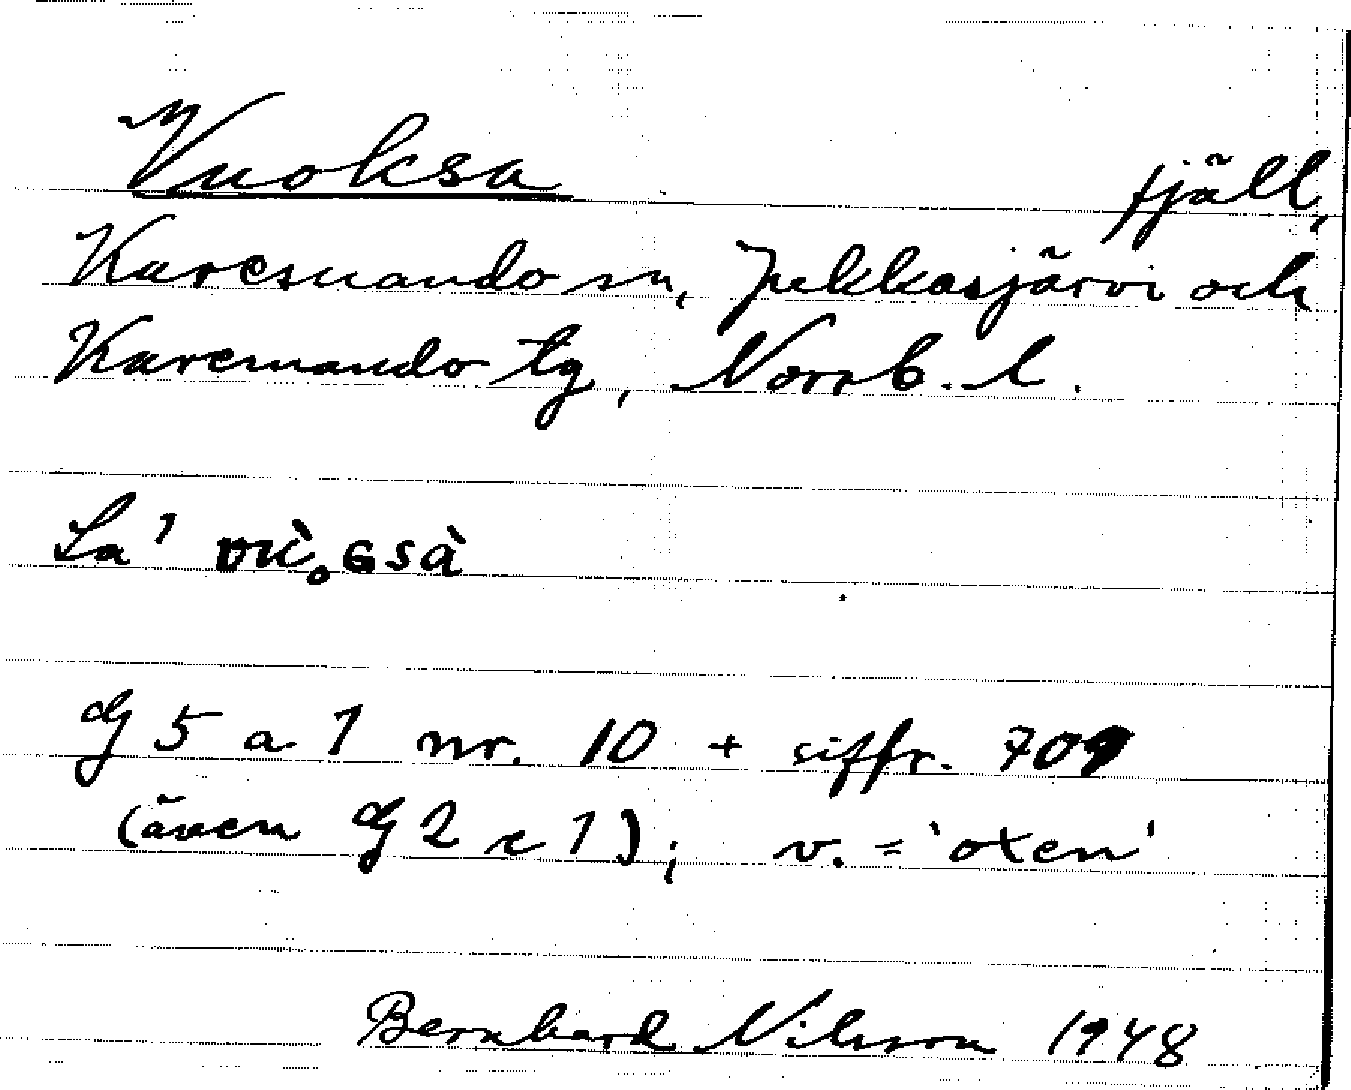 Vuoksa fjäll,
Karesuando sn, Jukkasjärvi och
Karesuando tg, Norrb. l.
La' vùₒGsà
G 5 a 1 nr. 10 + siffr. 709
(även G 2 c 1); v. = 'oxen'
Bernhard Nilsson 1948